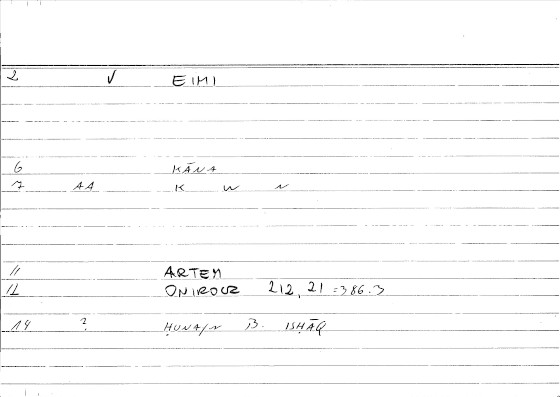 2 V EIMI
6 KĀNA
7 AA K W N
11 ARTEM
12 ONIROCR 212, 21 = 386.3
14 ? ḤUNAIN B. ISḤĀQ